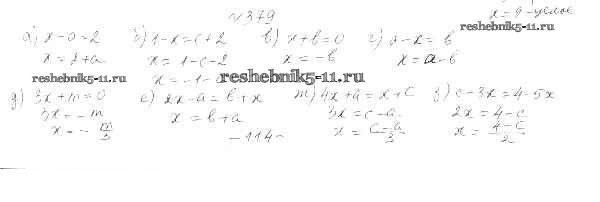 x = 9 - целое
№ 379
reshebnik5-11.ru
а) x - a = 2 б) 1 - x = c + 2 в) x + b = 0 г) a - x = b
x = 2 + a x = 1 - c - 2 x = -b x = a - b
reshebnik5-11.ru x = -1 - c reshebnik5-11.ru
д) 3x + m = 0 е) 2x - a = b + x ж) 4x + a = x + c з) c - 3x = 4 - 5x
3x = -m x = b + a 3x = c - a 2x = 4 - c
x = - m/3 x = c - a/3 x = 4 - c/2
- 114 -